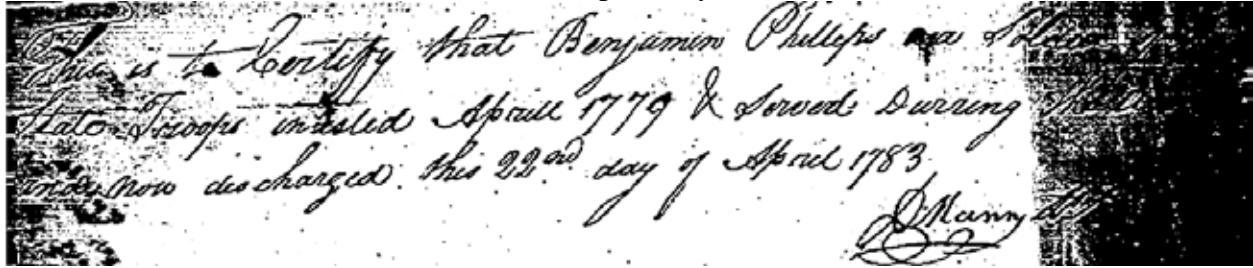 This is to Certify that Benjamin Phillips a Soldier
State Troops inlisted Aprill 1779 & Served Durring
and now discharged this 22nd day of April 1783
D Mann